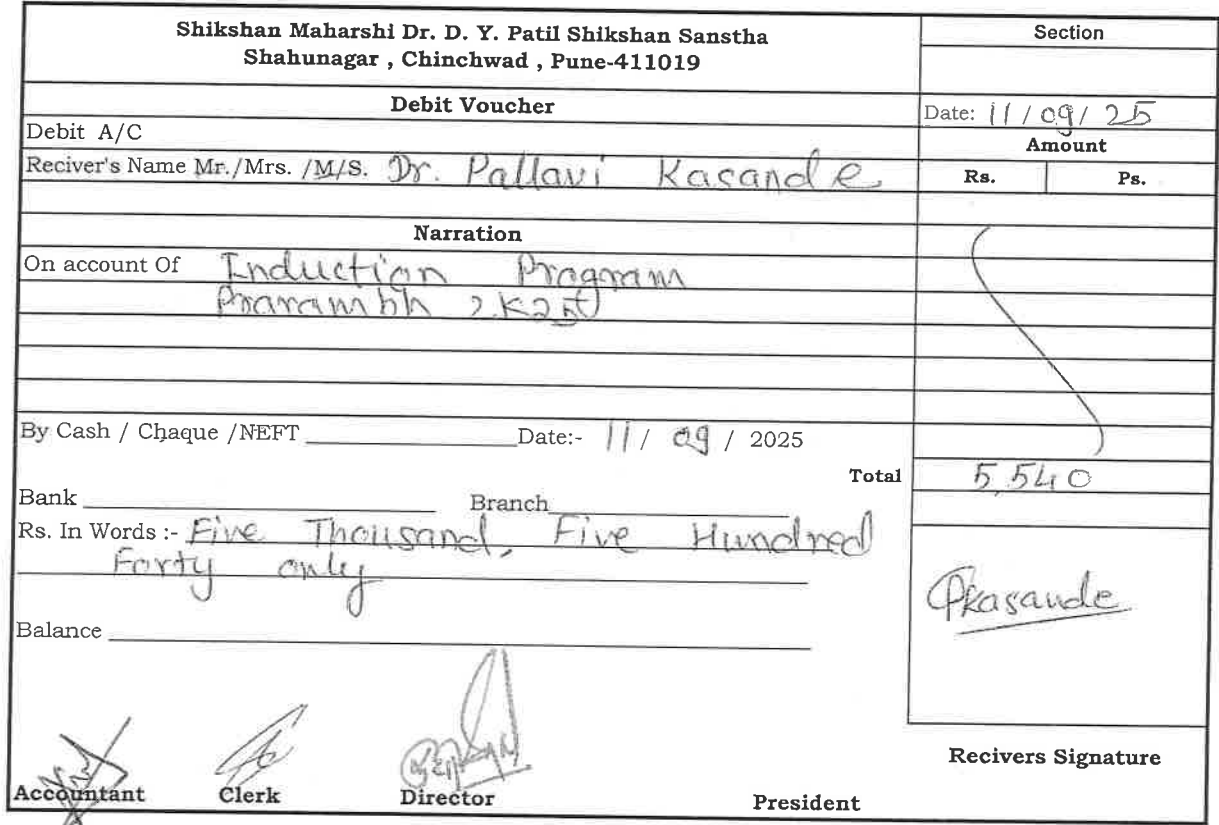 Shikshan Maharshi Dr. D. Y. Patil Shikshan Sanstha
Shahunagar , Chinchwad , Pune-411019
Section
Debit Voucher
Date: 11 / 09 / 25
Debit A/C
Amount
Reciver's Name Mr./Mrs. /M/S. Dr. Pallavi Kasande
Rs. Ps.
Narration
On account Of Induction Program
Prarambh 2K25
By Cash / Chaque /NEFT Date:- 11 / 09 / 2025
Total 5,540
Bank Branch
Rs. In Words :- Five Thousand, Five Hundred
Forty only
Pkasande
Balance
Recivers Signature
Accountant Clerk Director President